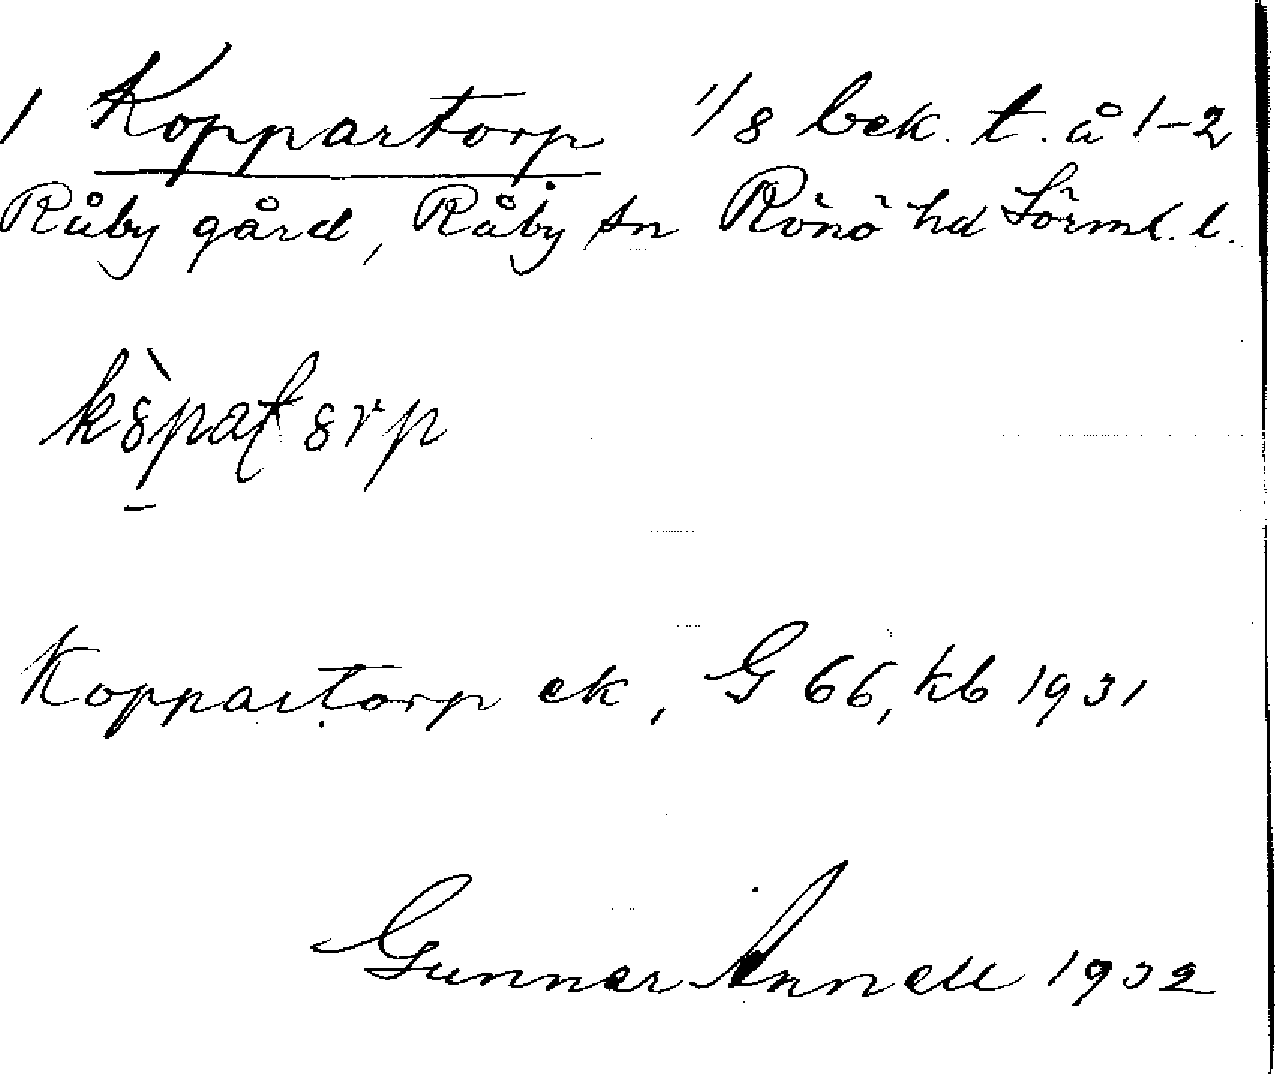 1 Koppartorp 1/8 bek. t. å 1-2
Råby gård, Råby sn Rönö hd Sörml. l.
Koppartorp ek, G 66, kb 1931
Gunnar Annell 1932